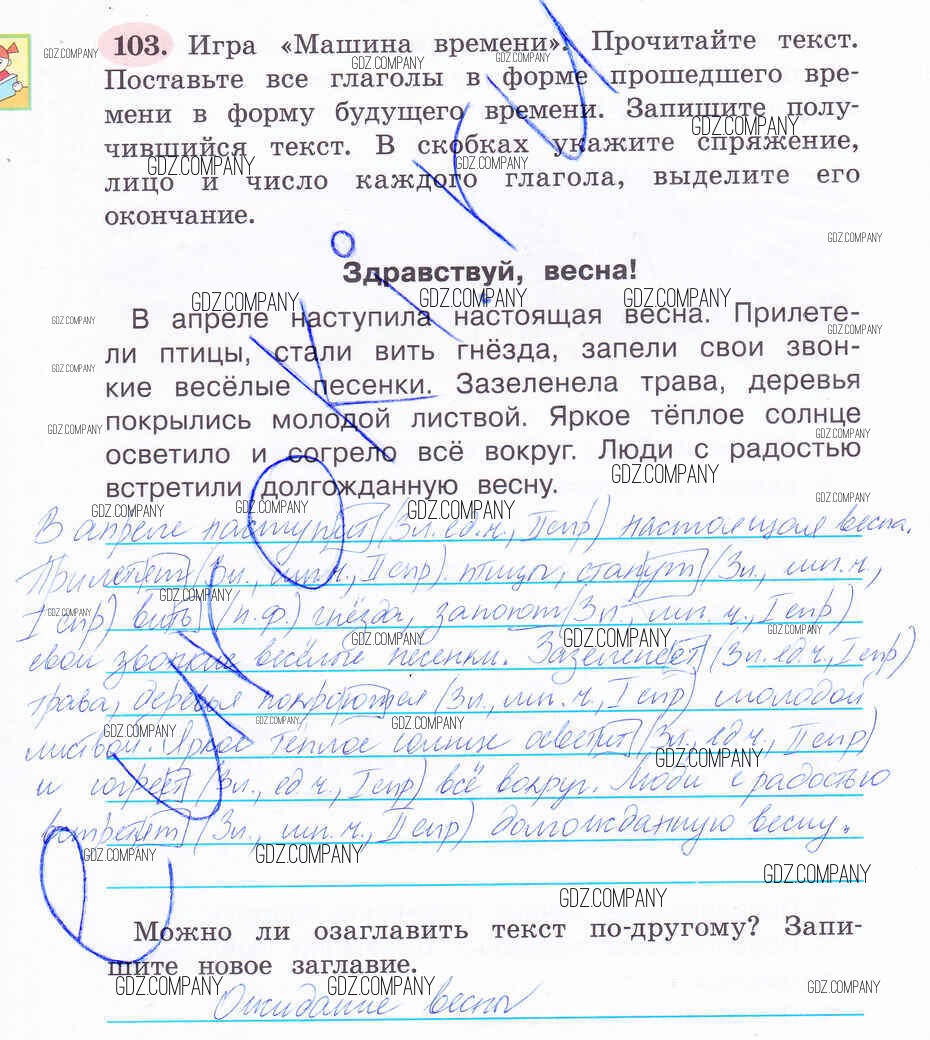 103. Игра «Машина времени». Прочитайте текст.
Поставьте все глаголы в форме прошедшего вре-
мени в форму будущего времени. Запишите полу-
чившийся текст. В скобках укажите спряжение,
лицо и число каждого глагола, выделите его
окончание.
Здравствуй, весна!
В апреле наступила настоящая весна. Прилете-
ли птицы, стали вить гнёзда, запели свои звон-
кие весёлые песенки. Зазеленела трава, деревья
покрылись молодой листвой. Яркое тёплое солнце
осветило и согрело всё вокруг. Люди с радостью
встретили долгожданную весну.
В апреле наступит (3л. ед.ч., II спр) настоящая весна.
Прилетят (3л., мн.ч., II спр) птицы, станут (3л., мн.ч,
I спр) вить (н.ф.) гнёзда, запоют (3л, мн.ч, I спр)
свои звонкие весёлые песенки. Зазеленеет (3л. ед.ч, I спр)
трава, деревья покроются (3л., мн.ч, I спр) молодой
листвой. Яркое тёплое солнце осветит (3л, ед.ч., II спр)
и согреет (3л., ед.ч., I спр) всё вокруг. Люди с радостью
встретят (3л., мн.ч., II спр) долгожданную весну.
Можно ли озаглавить текст по-другому? Запи-
шите новое заглавие.
Ожидание весны
GDZ.COMPANY